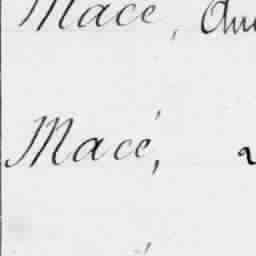 Macé,
Macé,